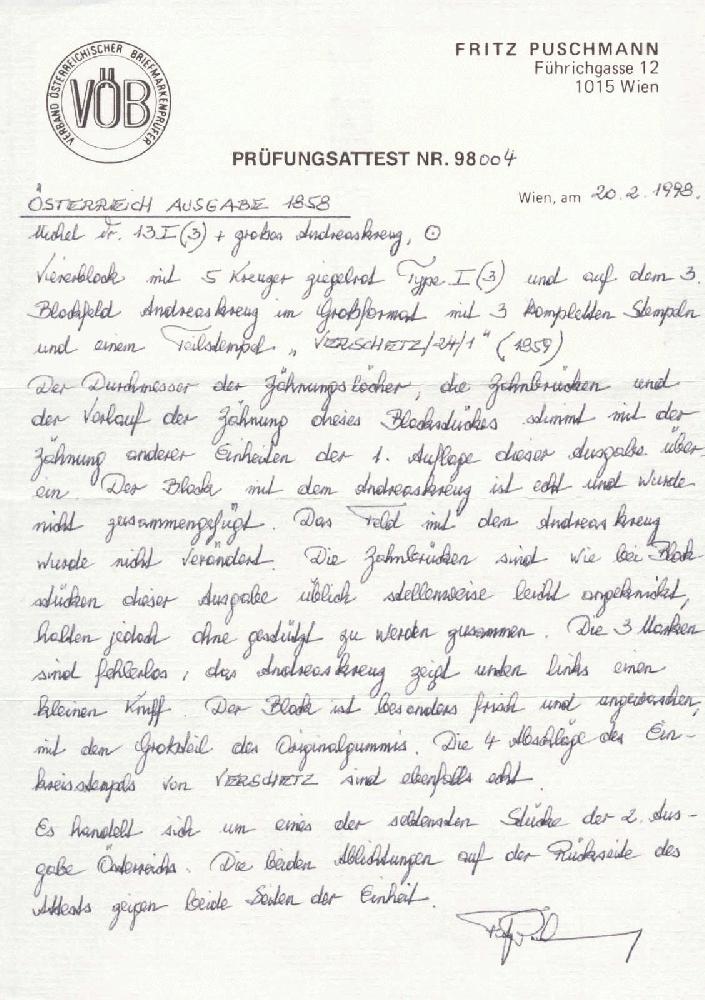 VERBAND ÖSTERREICHISCHER BRIEFMARKENPRÜFER
VÖB
FRITZ PUSCHMANN
Führichgasse 12
1015 Wien
PRÜFUNGSATTEST NR. 98004
Wien, am 20.2.1998.
ÖSTERREICH AUSGABE 1858
Michel Nr. 13 I (3) + großes Andreaskreuz, ⊙
Viererblock mit 5 Kreuzer ziegelrot Type I (3) und auf dem 3.
Blockfeld Andreaskreuz im Großformat mit 3 kompletten Stempeln
und einem Teilstempel „VERSCHETZ/24/1" (1859)
Der Durchmesser der Zähnungslöcher, die Zahnbrücken und
der Verlauf der Zähnung dieses Blockstückes stimmt mit der
Zähnung anderer Einheiten der 1. Auflage dieser Ausgabe über-
ein. Der Block mit dem Andreaskreuz ist echt und wurde
nicht zusammengefügt. Das Feld mit dem Andreaskreuz
wurde nicht verändert. Die Zahnbrücken sind wie bei Block-
stücken dieser Ausgabe üblich stellenweise leicht angeknickt,
halten jedoch ohne gestützt zu werden zusammen. Die 3 Marken
sind fehlerlos, das Andreaskreuz zeigt unten links einen
kleinen Kniff. Der Block ist besonders frisch und ungewaschen,
mit dem Großteil des Originalgummis. Die 4 Abschläge des Ein-
kreisstempels von VERSCHETZ sind ebenfalls echt.
Es handelt sich um eines der seltensten Stücke der 2. Aus-
gabe Österreichs. Die beiden Ablichtungen auf der Rückseite des
Attests zeigen beide Seiten der Einheit.